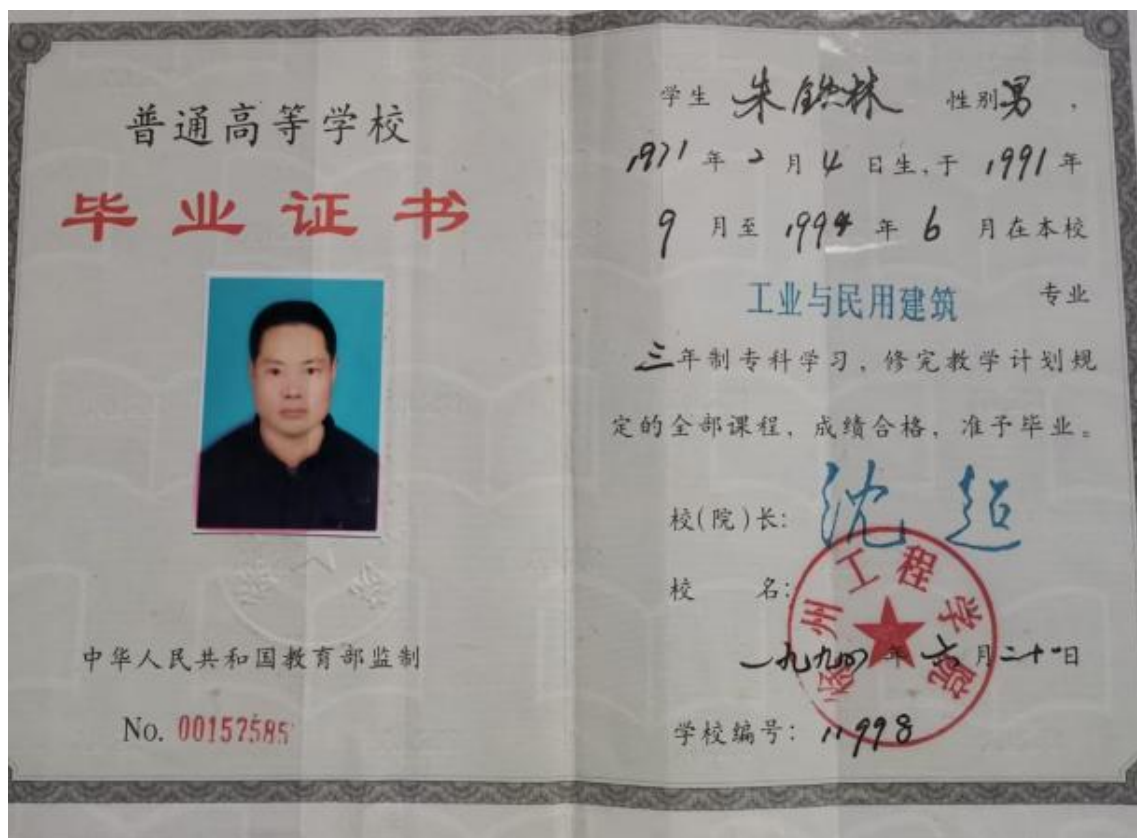 普通高等学校
毕业证书
中华人民共和国教育部监制
No. 00157585
学生 朱铁林 性别男,
1971年2月4日生,于1991年
9月至1994年6月在本校
工业与民用建筑 专业
三年制专科学习,修完教学计划规
定的全部课程,成绩合格,准予毕业。
校(院)长: 沈超
校 名:
徐州工程学院
一九九四年六月二十一日
学校编号: 11998